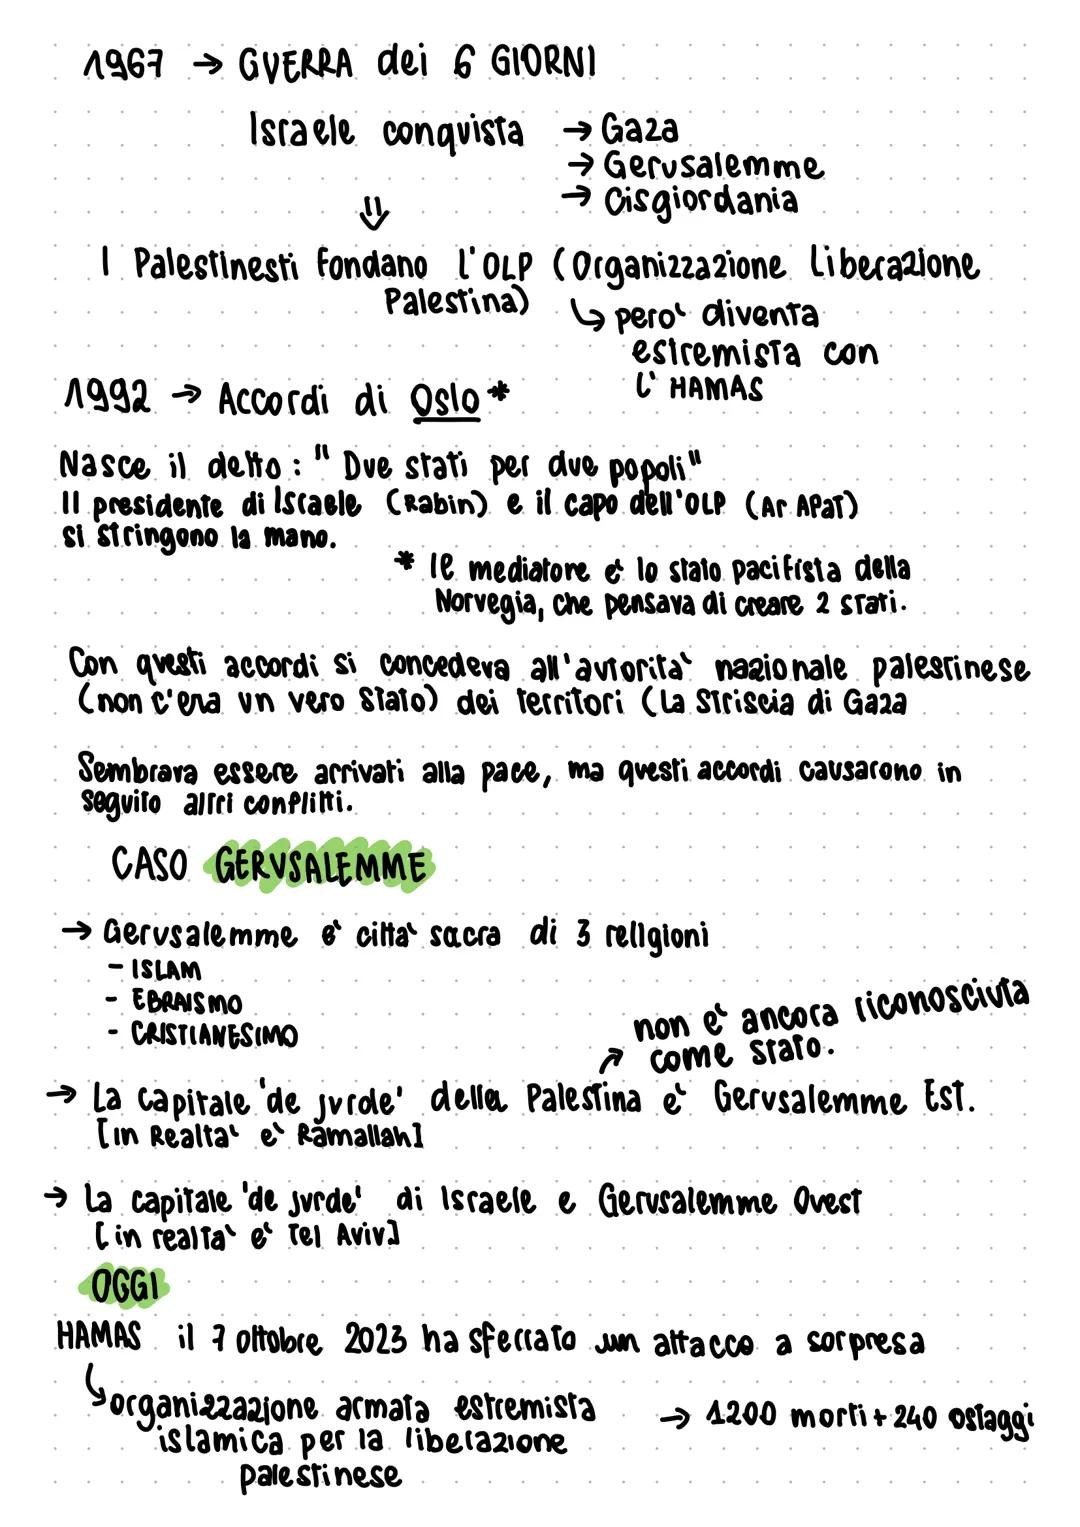 1967 → GUERRA dei 6 GIORNI
Israele conquista → Gaza
→ Gerusalemme
→ Cisgiordania
⇓
I Palestinesti fondano l'OLP (Organizzazione Liberazione
Palestina)
↳ pero' diventa
estremista con
l' HAMAS
1992 → Accordi di Oslo *
Nasce il detto : " Due stati per due popoli"
Il presidente di Israele (Rabin) e il capo dell'OLP (Ar APaT)
si stringono la mano.
* le mediatore e' lo stato pacifista della
Norvegia, che pensava di creare 2 stati.
Con questi accordi si concedeva all'autorita' nazionale palestinese
(non c'era un vero stato) dei territori (La Striscia di Gaza
Sembrava essere arrivati alla pace, ma questi accordi causarono in
seguito altri conflitti.
CASO GERUSALEMME
→ Gerusalemme e' citta' sacra di 3 religioni
- ISLAM
- EBRAISMO
- CRISTIANESIMO
non e' ancora riconosciuta
↗ come stato.
→ La capitale 'de jurde' della Palestina e' Gerusalemme Est.
[in Realta' e' Ramallah]
→ La capitale 'de jurde' di Israele e Gerusalemme Ovest
[in realta' e' Tel Aviv]
OGGI
HAMAS il 7 ottobre 2023 ha sferrato un attacco a sorpresa
↳ organizzazione armata estremista → 1200 morti + 240 ostaggi
islamica per la liberazione
palestinese